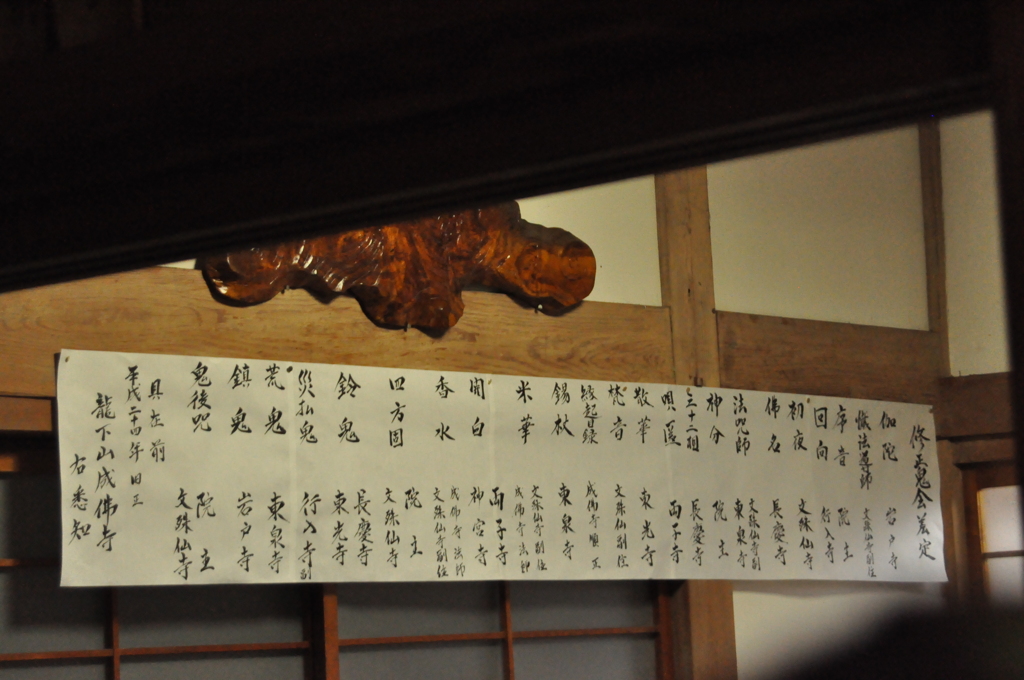 修正鬼会差定
伽陀 岩戸寺
懺法導師 文殊仙寺副住
序音 院主
回向 行入寺
初夜 文殊仙寺
佛名 長慶寺
法咒師 文殊仙寺副 東泉寺
神分 院主
三十二相 長慶寺
唄匿 両子寺
散華 東光寺
梵音 文殊仙寺副住
縁起目録 成佛寺順正
錫杖 東泉寺
米華 文殊仙寺副住 成佛寺法師 両子寺
開白 神宮寺
香水 成佛寺法師 文殊仙寺副住
四方固 院主 文殊仙寺
鈴鬼 長慶寺 東光寺
災払鬼 行入寺副
荒鬼 東泉寺
鎮鬼 岩戸寺
鬼後咒 院主 文殊仙寺
具在前
平成二十四年旧正
龍下山成佛寺
右悉知